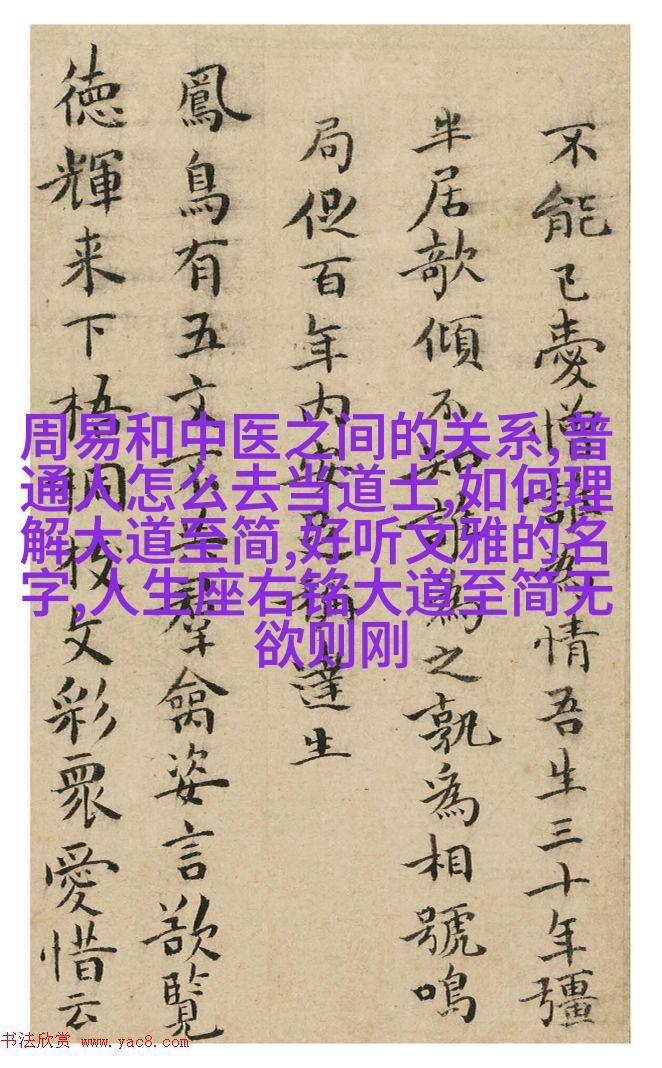 不能已愛憎誰為情吾生三十年彊
半居欹傾不知誰為之孰為相號鳴
局促百年内安稱達生
鳳鳥有五文不羣禽姿言欲覧
徳輝来下梧桐枝文彩衆愛惜云
周易和中医之间的关系,普
通人怎么去当道士,如何理
解大道至简,好听文雅的名
字,人生座右铭大道至简无
欲则刚
书法欣赏 www.yac8.com